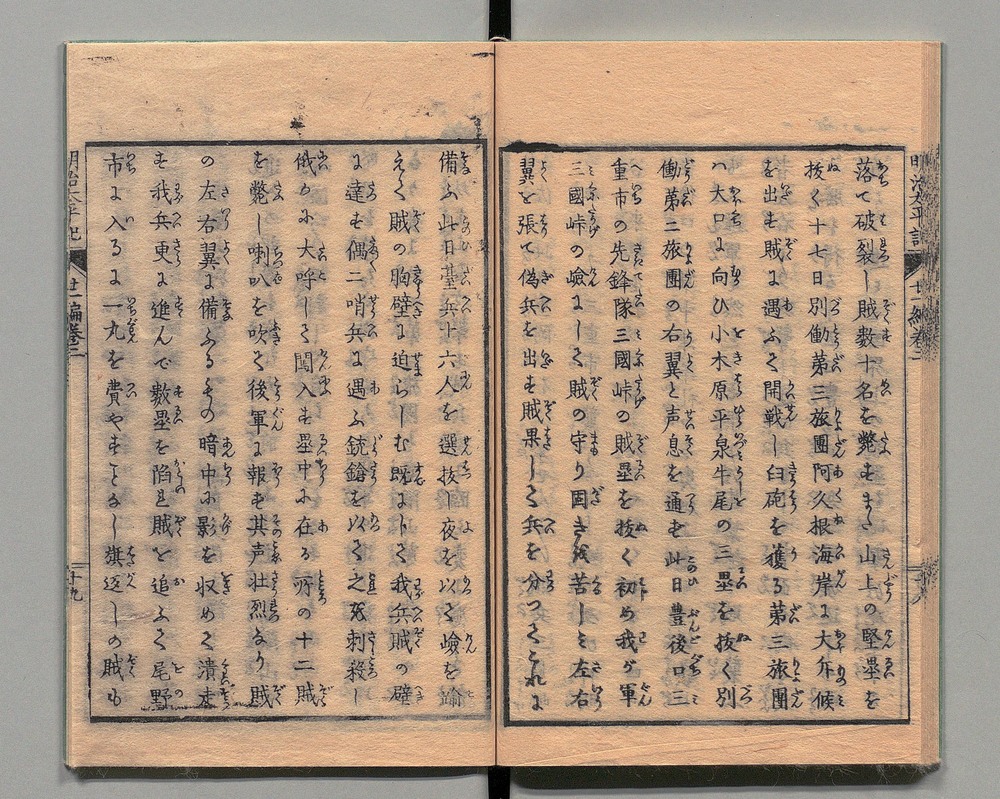 明治太平記 廿一編巻三 十八
落て破裂し賊数十名を斃すまた山上の堅塁を
抜く十七日別働第三旅團阿久根海岸に大斥候
を出す賊に遇ふて開戦し臼砲を獲る第三旅團
ハ大口に向ひ小木原平泉牛尾の三塁を抜く別
働第二旅團の右翼と声息を通ず此日豊後口三
重市の先鋒隊三國峠の賊塁を抜く初め我が軍
三國峠の嶮にして賊の守り固きに苦しミ左右
翼を張て偽兵を出す賊果して兵を分つてこれに
備ふ此日臺兵十六人を選抜し夜を以て嶮を踰
えて賊の胸壁に迫らしむ既にして我兵賊の壁
に達す偶二哨兵に遇ふ銃鎗を以て之を刺殺し
俄かに大呼して闖入す塁中に在る所の十二賊
を斃し喇叭を吹て後軍に報ず其声壮烈なり賊
の左右翼に備ふるもの暗中に影を収めて潰走
す我兵更に進んで数塁を陷れ賊を追ふて尾野
市に入るに一丸を費やすことなし旗返しの賊も
明治太平記 廿一編巻三 十九